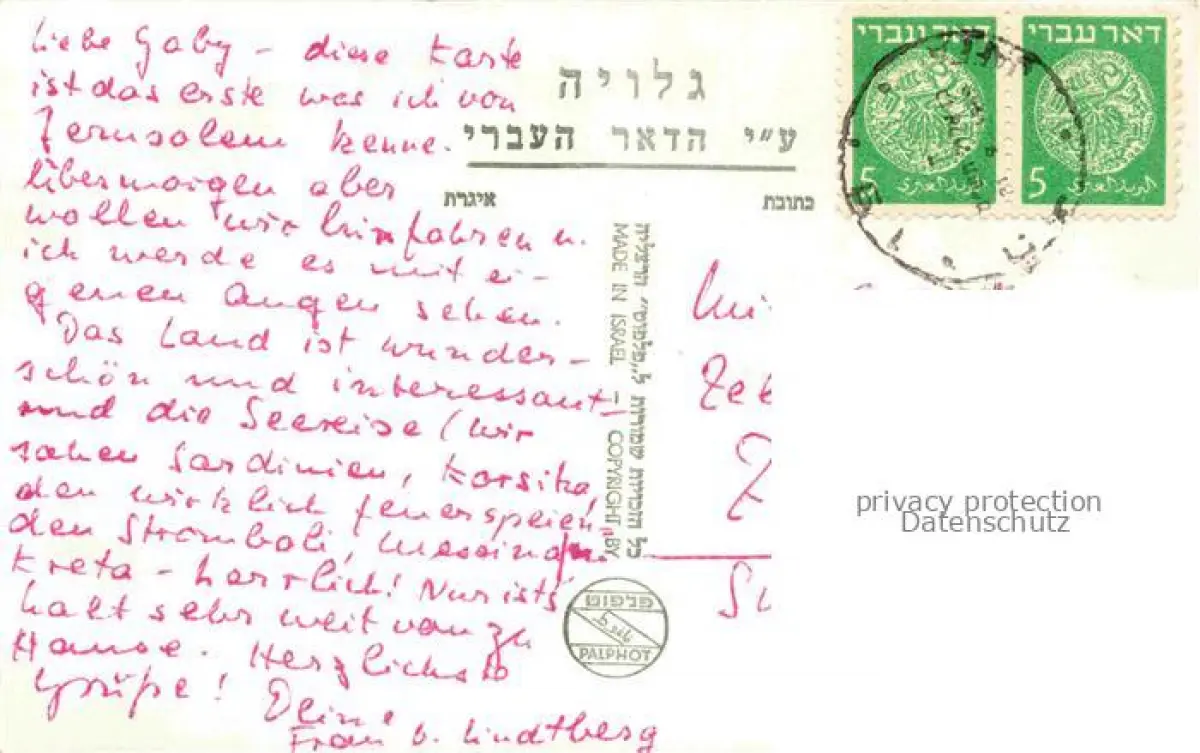 liebe Gaby – diese Karte
ist das erste was ich von
Jerusalem kenne.
Übermorgen aber
wollen wir hinfahren u.
ich werde es mit ei-
genen Augen sehen.
Das Land ist wunder-
schön und interessant –
und die Seereise (wir
sahen Sardinien, Korsika,
den wirklich feuerspeien-
den Stromboli, Messina,
Kreta – herrlich! Nur ist's
halt sehr weit von zu
Hause. Herzlichste
Grüße!
Deine
Frau v. Lindtberg
גלויה
ע״י הדאר העברי
איגרת
כתובת
כל הזכויות שמורות ל„פלפוט” הרצליה
MADE IN ISRAEL – COPYRIGHT BY
פלפוט
PALPHOT
דאר עברי
5
البريد العبري
דאר עברי
5
البريد العبري
Zeb
Z
privacy protection
Datenschutz